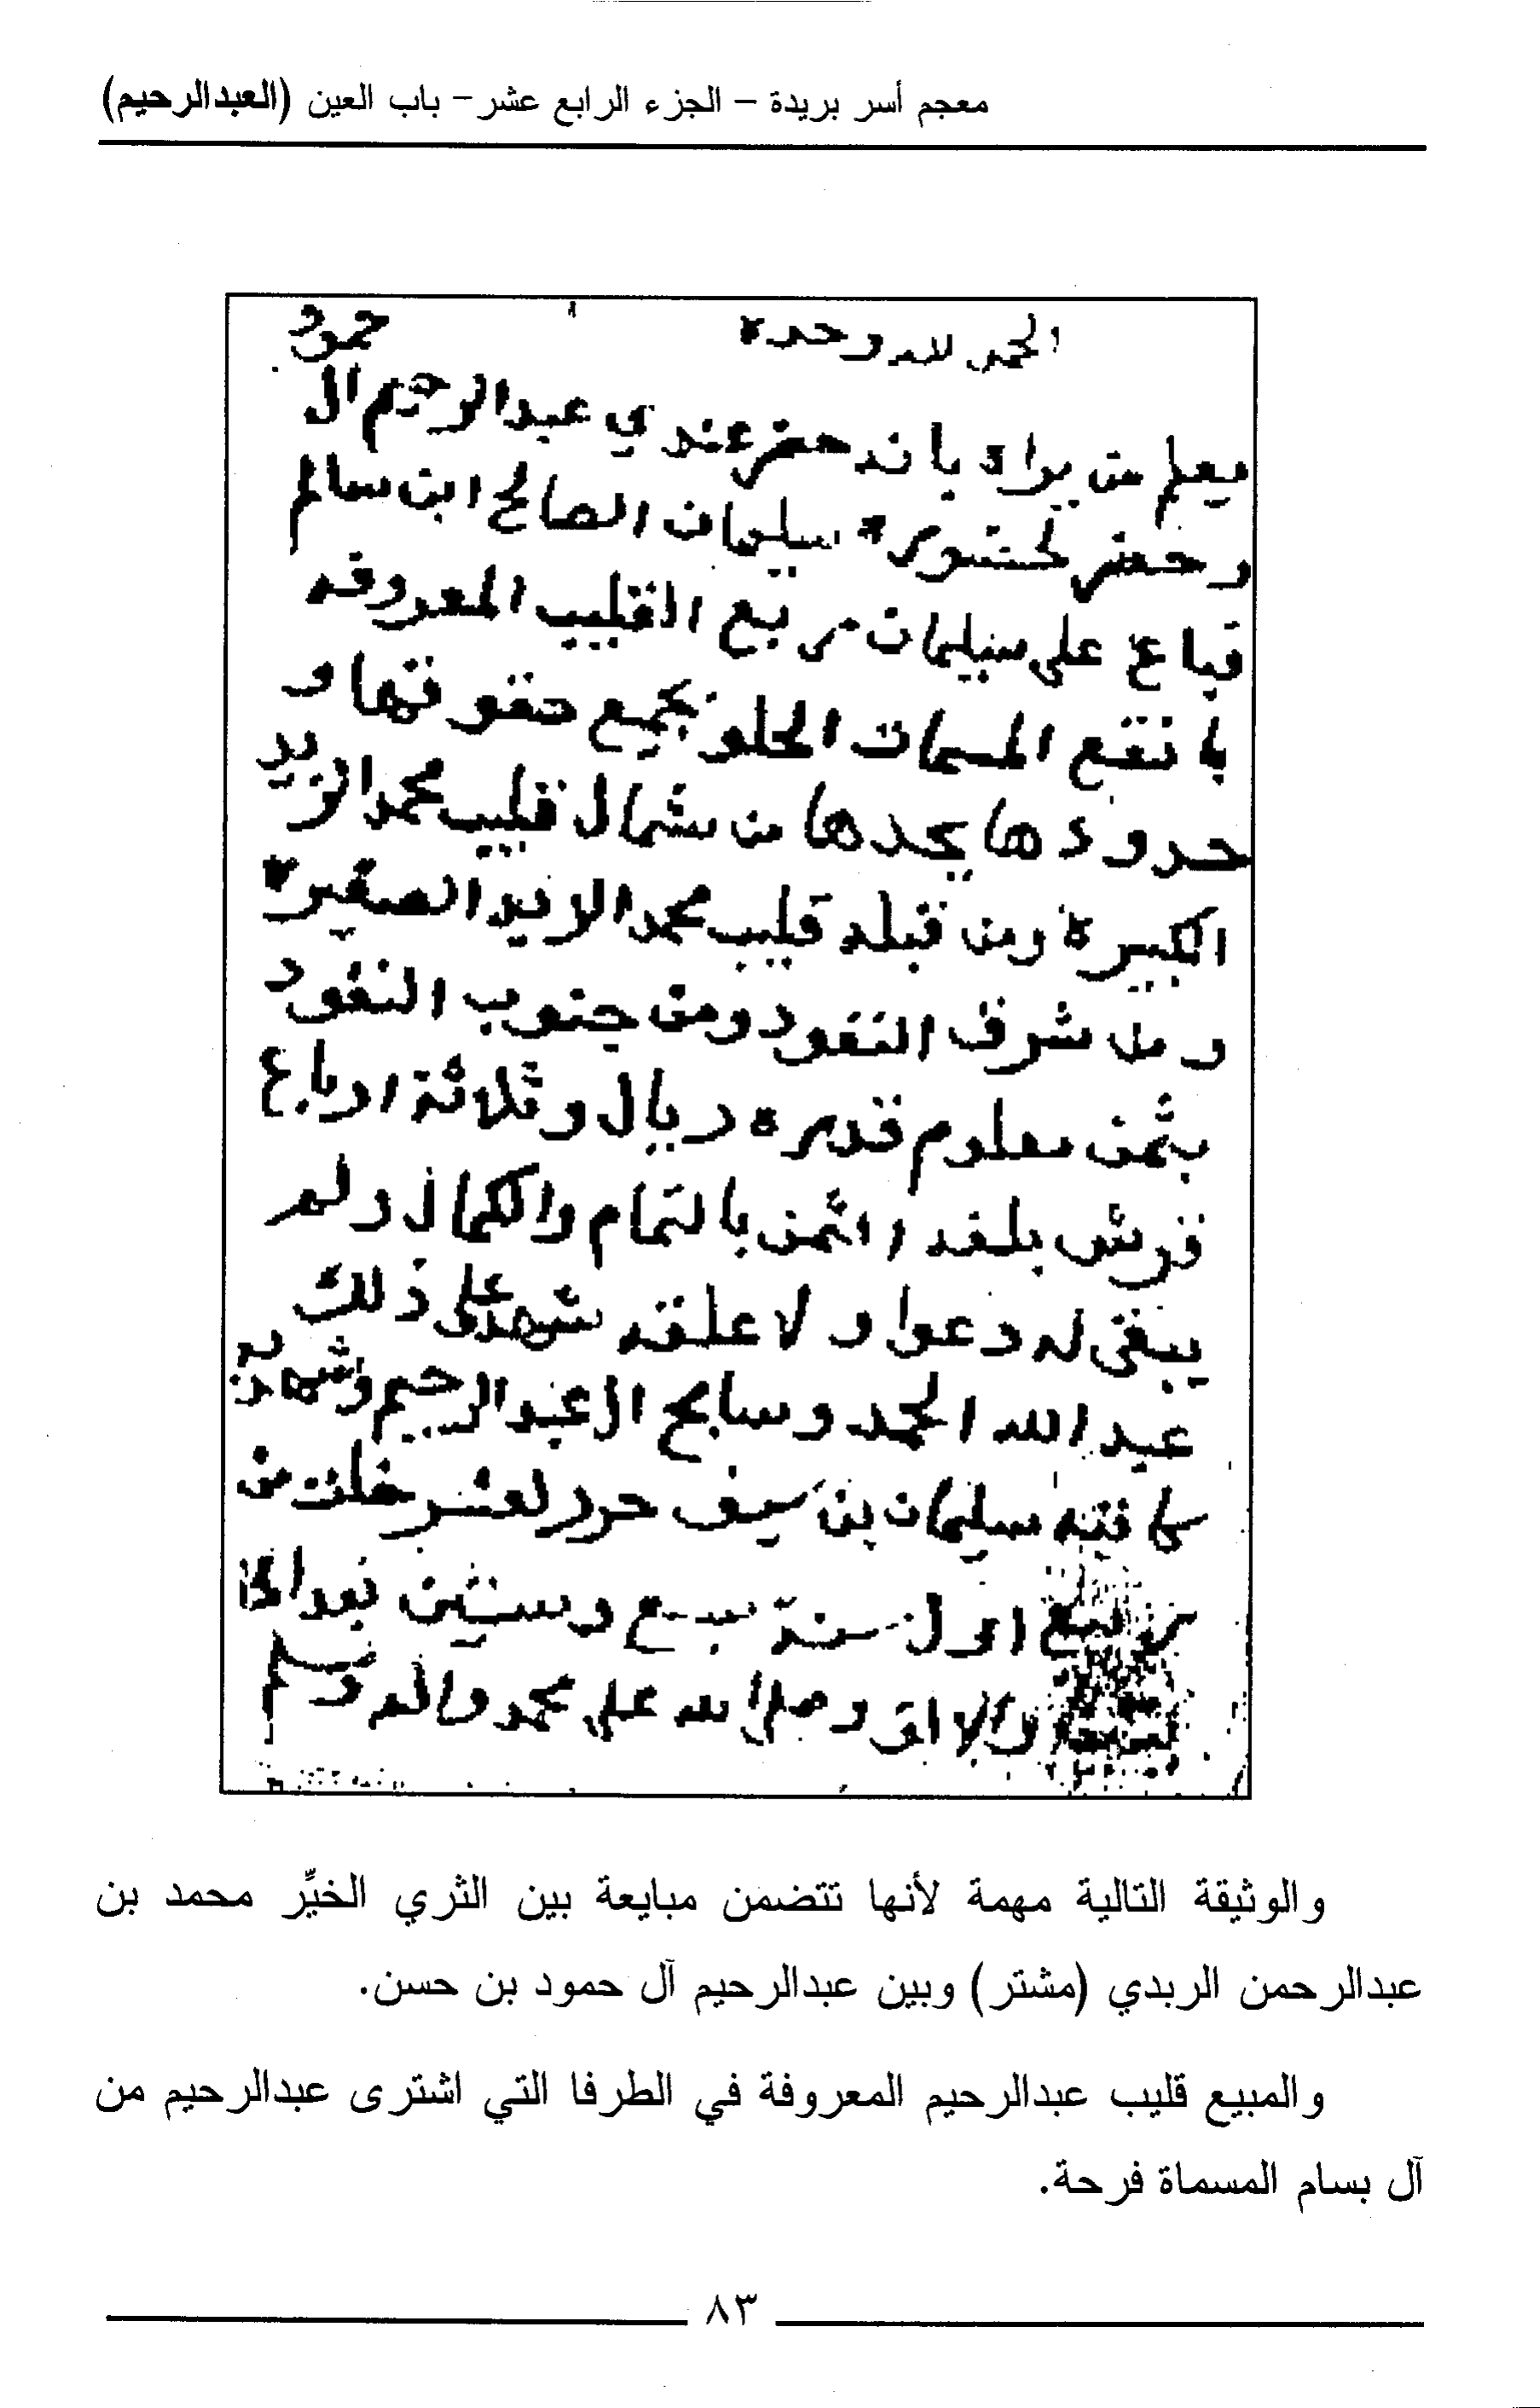 معجم أسر بريدة – الجزء الرابع عشر – باب العين (العبدالرحيم)
الحمد لله وحده
يعلم من يراه بانه حضر عندي عبدالرحيم ال حمود
وحضر لحضوره سليمان الصالح ابن سالم
فباع على سليمان ربع القليب المعروفه
المسمات الحلوه بجميع حقوقها و
حدودها يحدها من شمال قليب محمد الربد
الكبيرة ومن قبله قليب محمد الربد الصغيره
ومن شرق النفود ومن جنوب النفود
بثمن معلوم قدره ريال وثلاثة ارباع
قرش بلغه الثمن بالتمام والكمال ولم
يبقى له دعوا ولا علقه شهد على ذلك
عبدالله الحمد وسابح ال عبدالرحيم وشهد به
كاتبه سليمان بن سيف حرر لعشر خلت من
ربيع اول سنة سبع وستين بعد
والالف وصلى الله على محمد واله وسلم
والوثيقة التالية مهمة لأنها تتضمن مبايعة بين الثري الخيِّر محمد بن
عبدالرحمن الربدي (مشتر) وبين عبدالرحيم آل حمود بن حسن.
والمبيع قليب عبدالرحيم المعروفة في الطرفا التي اشترى عبدالرحيم من
آل بسام المسماة فرحة.
٨٣